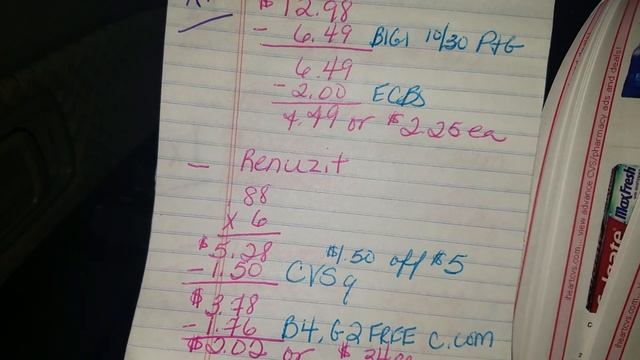 $12.98
- 6.49 B1G1 10/30 P+G
6.49
- 2.00 ECBs
4.49 or $2.25 ea
- Renuzit
88
x 6
$5.28 $1.50 off $5
- 1.50 CVS q
$3.78
- 1.76 B4, G2 FREE c.com
$2.02 or $.34 ea
iheartcvs.com... view advance CVS/pharmacy ads and deals!
iheartcvs.com
MaxFresh
Colgate